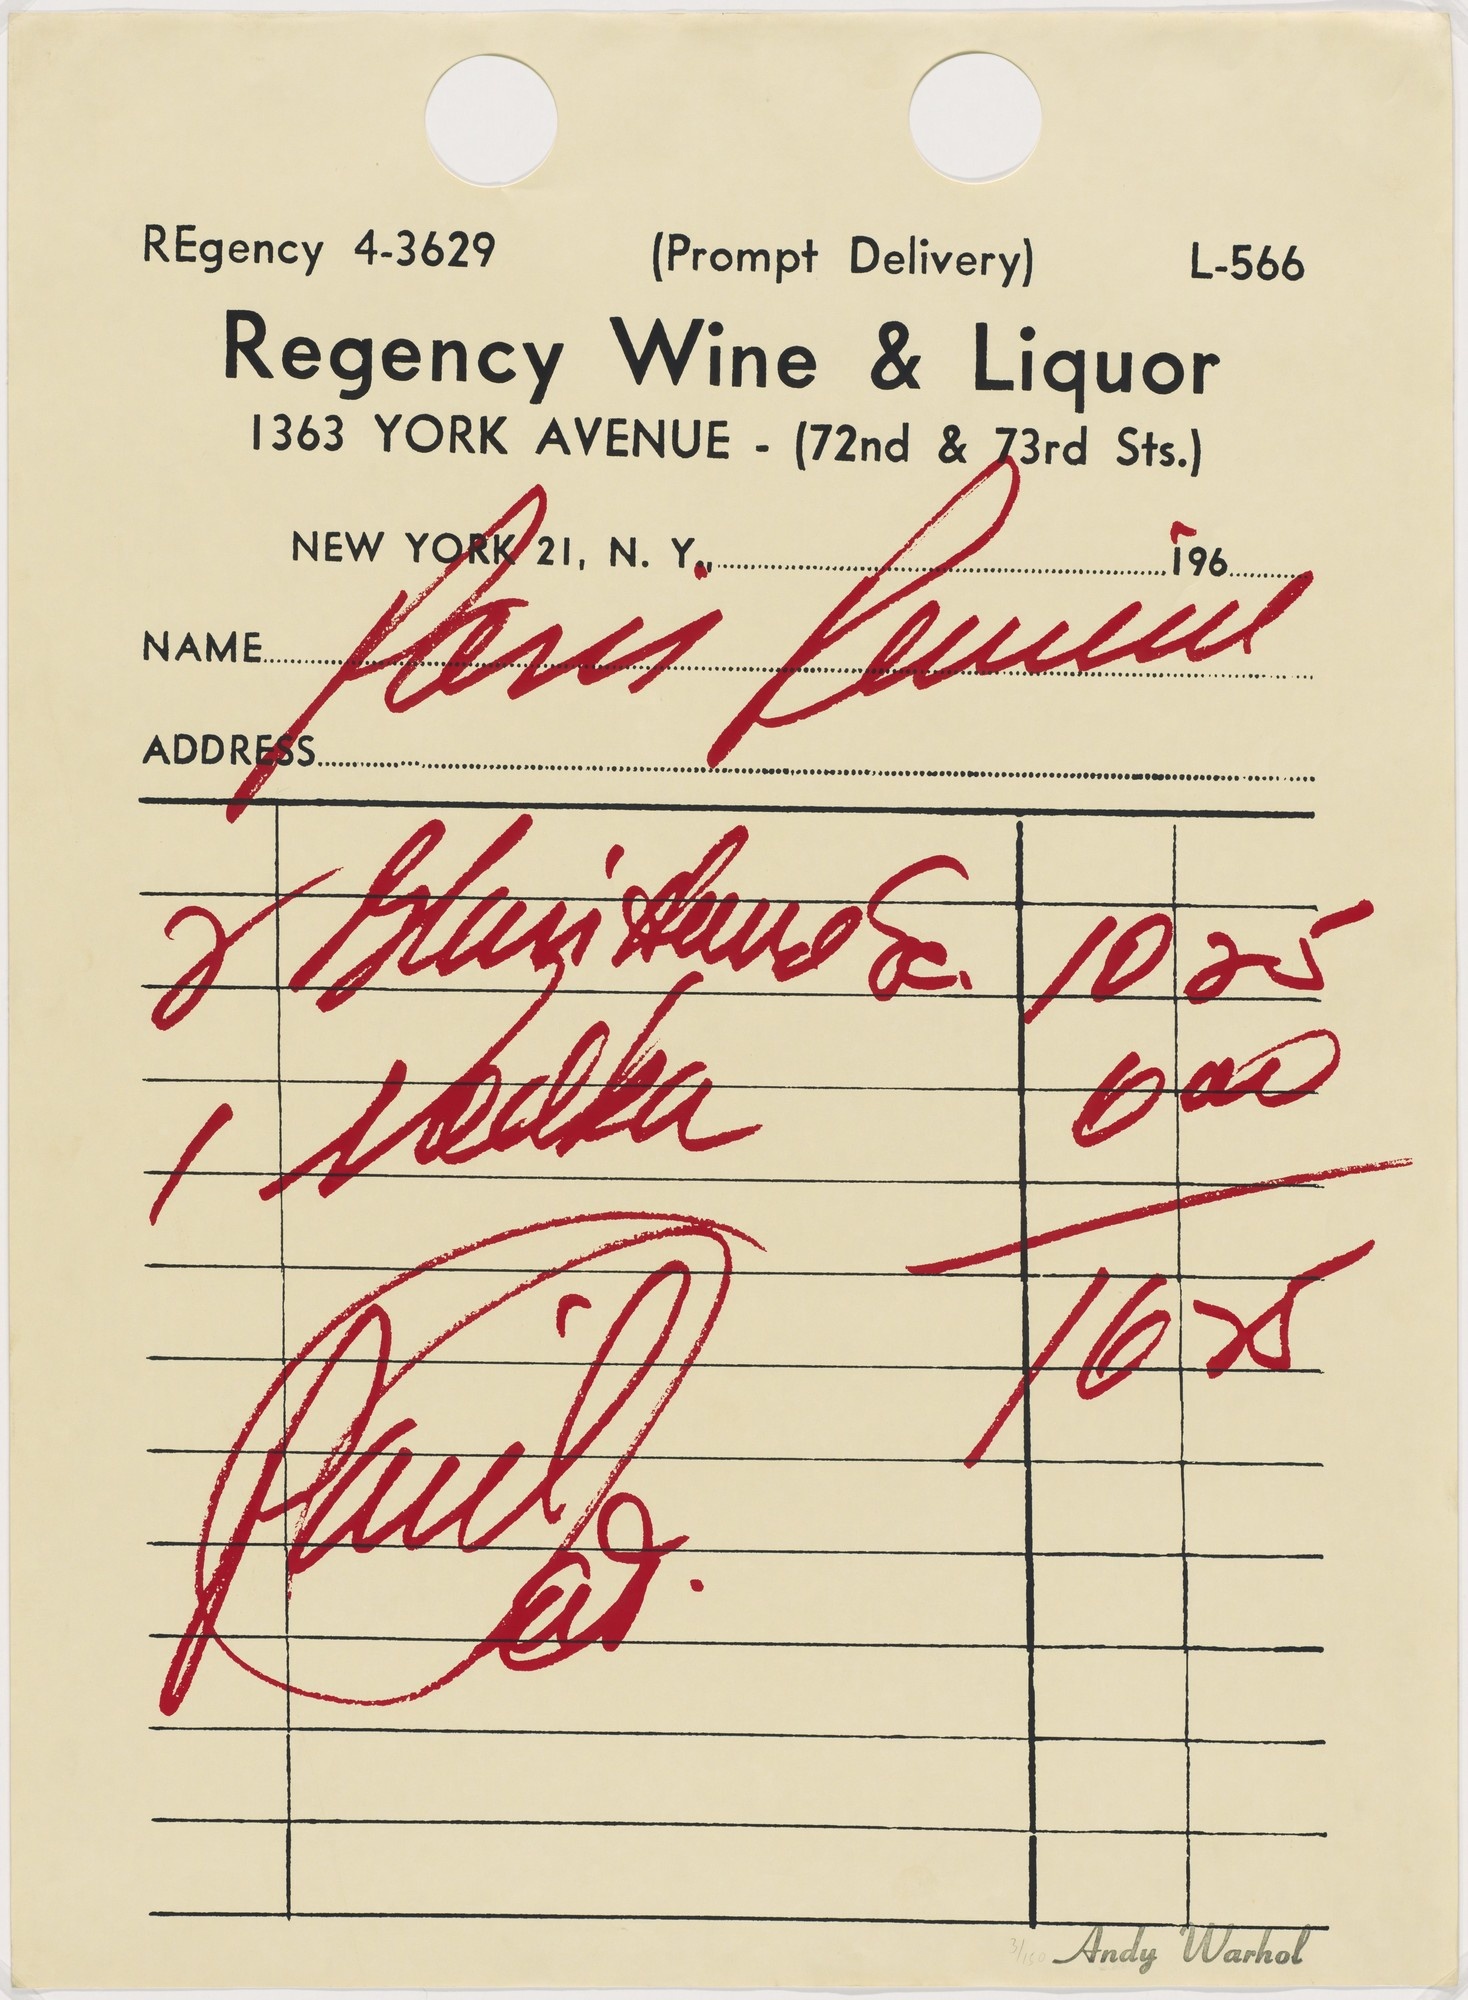 REgency 4-3629 (Prompt Delivery) L-566
Regency Wine & Liquor
1363 YORK AVENUE - (72nd & 73rd Sts.)
NEW YORK 21, N. Y., 196
NAME Paris Review
ADDRESS
2 Sc. 10 25
1 Vodka 6 00
16 25
Paid
3/150 Andy Warhol